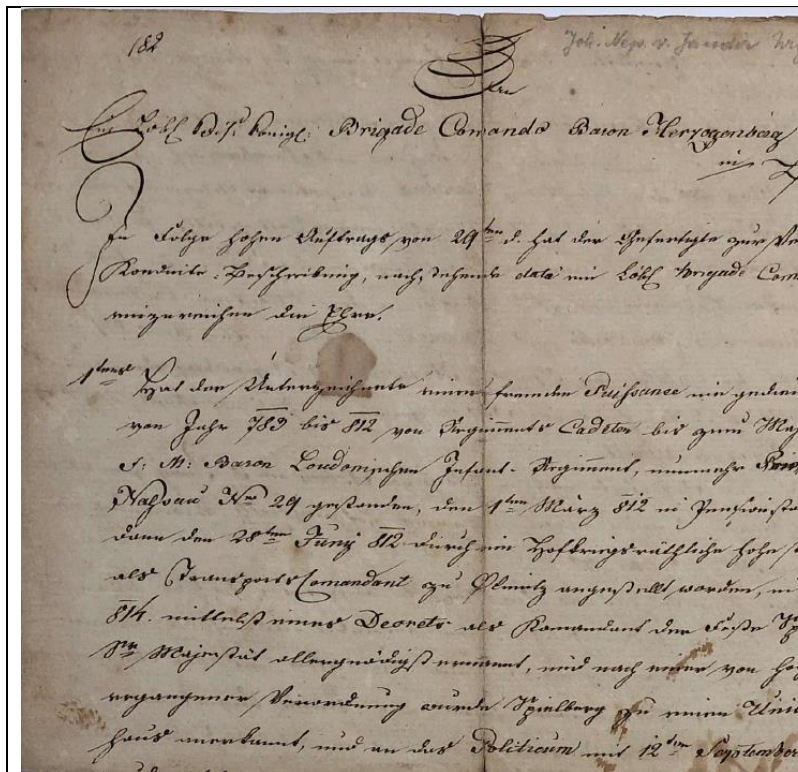 182
Joh. Nep. v. Jander
An
Ein Löbl. K: K: Königl: Brigade Comando Baron Herzogenberg
in
In Folge hohen Auftrags von 29ten d. hat der Gefertigte zur
Konduite-Beschreibung, nach stehende data ein Löbl Brigade
einzureichen die Ehre.
1tens Hat der Unterzeichnete einer fremden Puissance nie
von Jahr 783 bis 812 von Regiments Cadeten bis zum
F: M: Baron Loudonischen Infant. Regiment, nunmehr
Nassau Nro 29 gestanden, den 1ten März 812 in
dann den 28ten Juny 812 durch ein Hofkriegsräthliche hohe
als Transports Comandant zu Olmütz angestellt worden,
814. mittelst eines Decrets als Komandant der Feste
Sr Majestät allergnädigst ernannt, und nach einer von
ergangener Verordnung wurde Spielberg zu einen
haus anerkannt, und an das Politicum mit 12ten